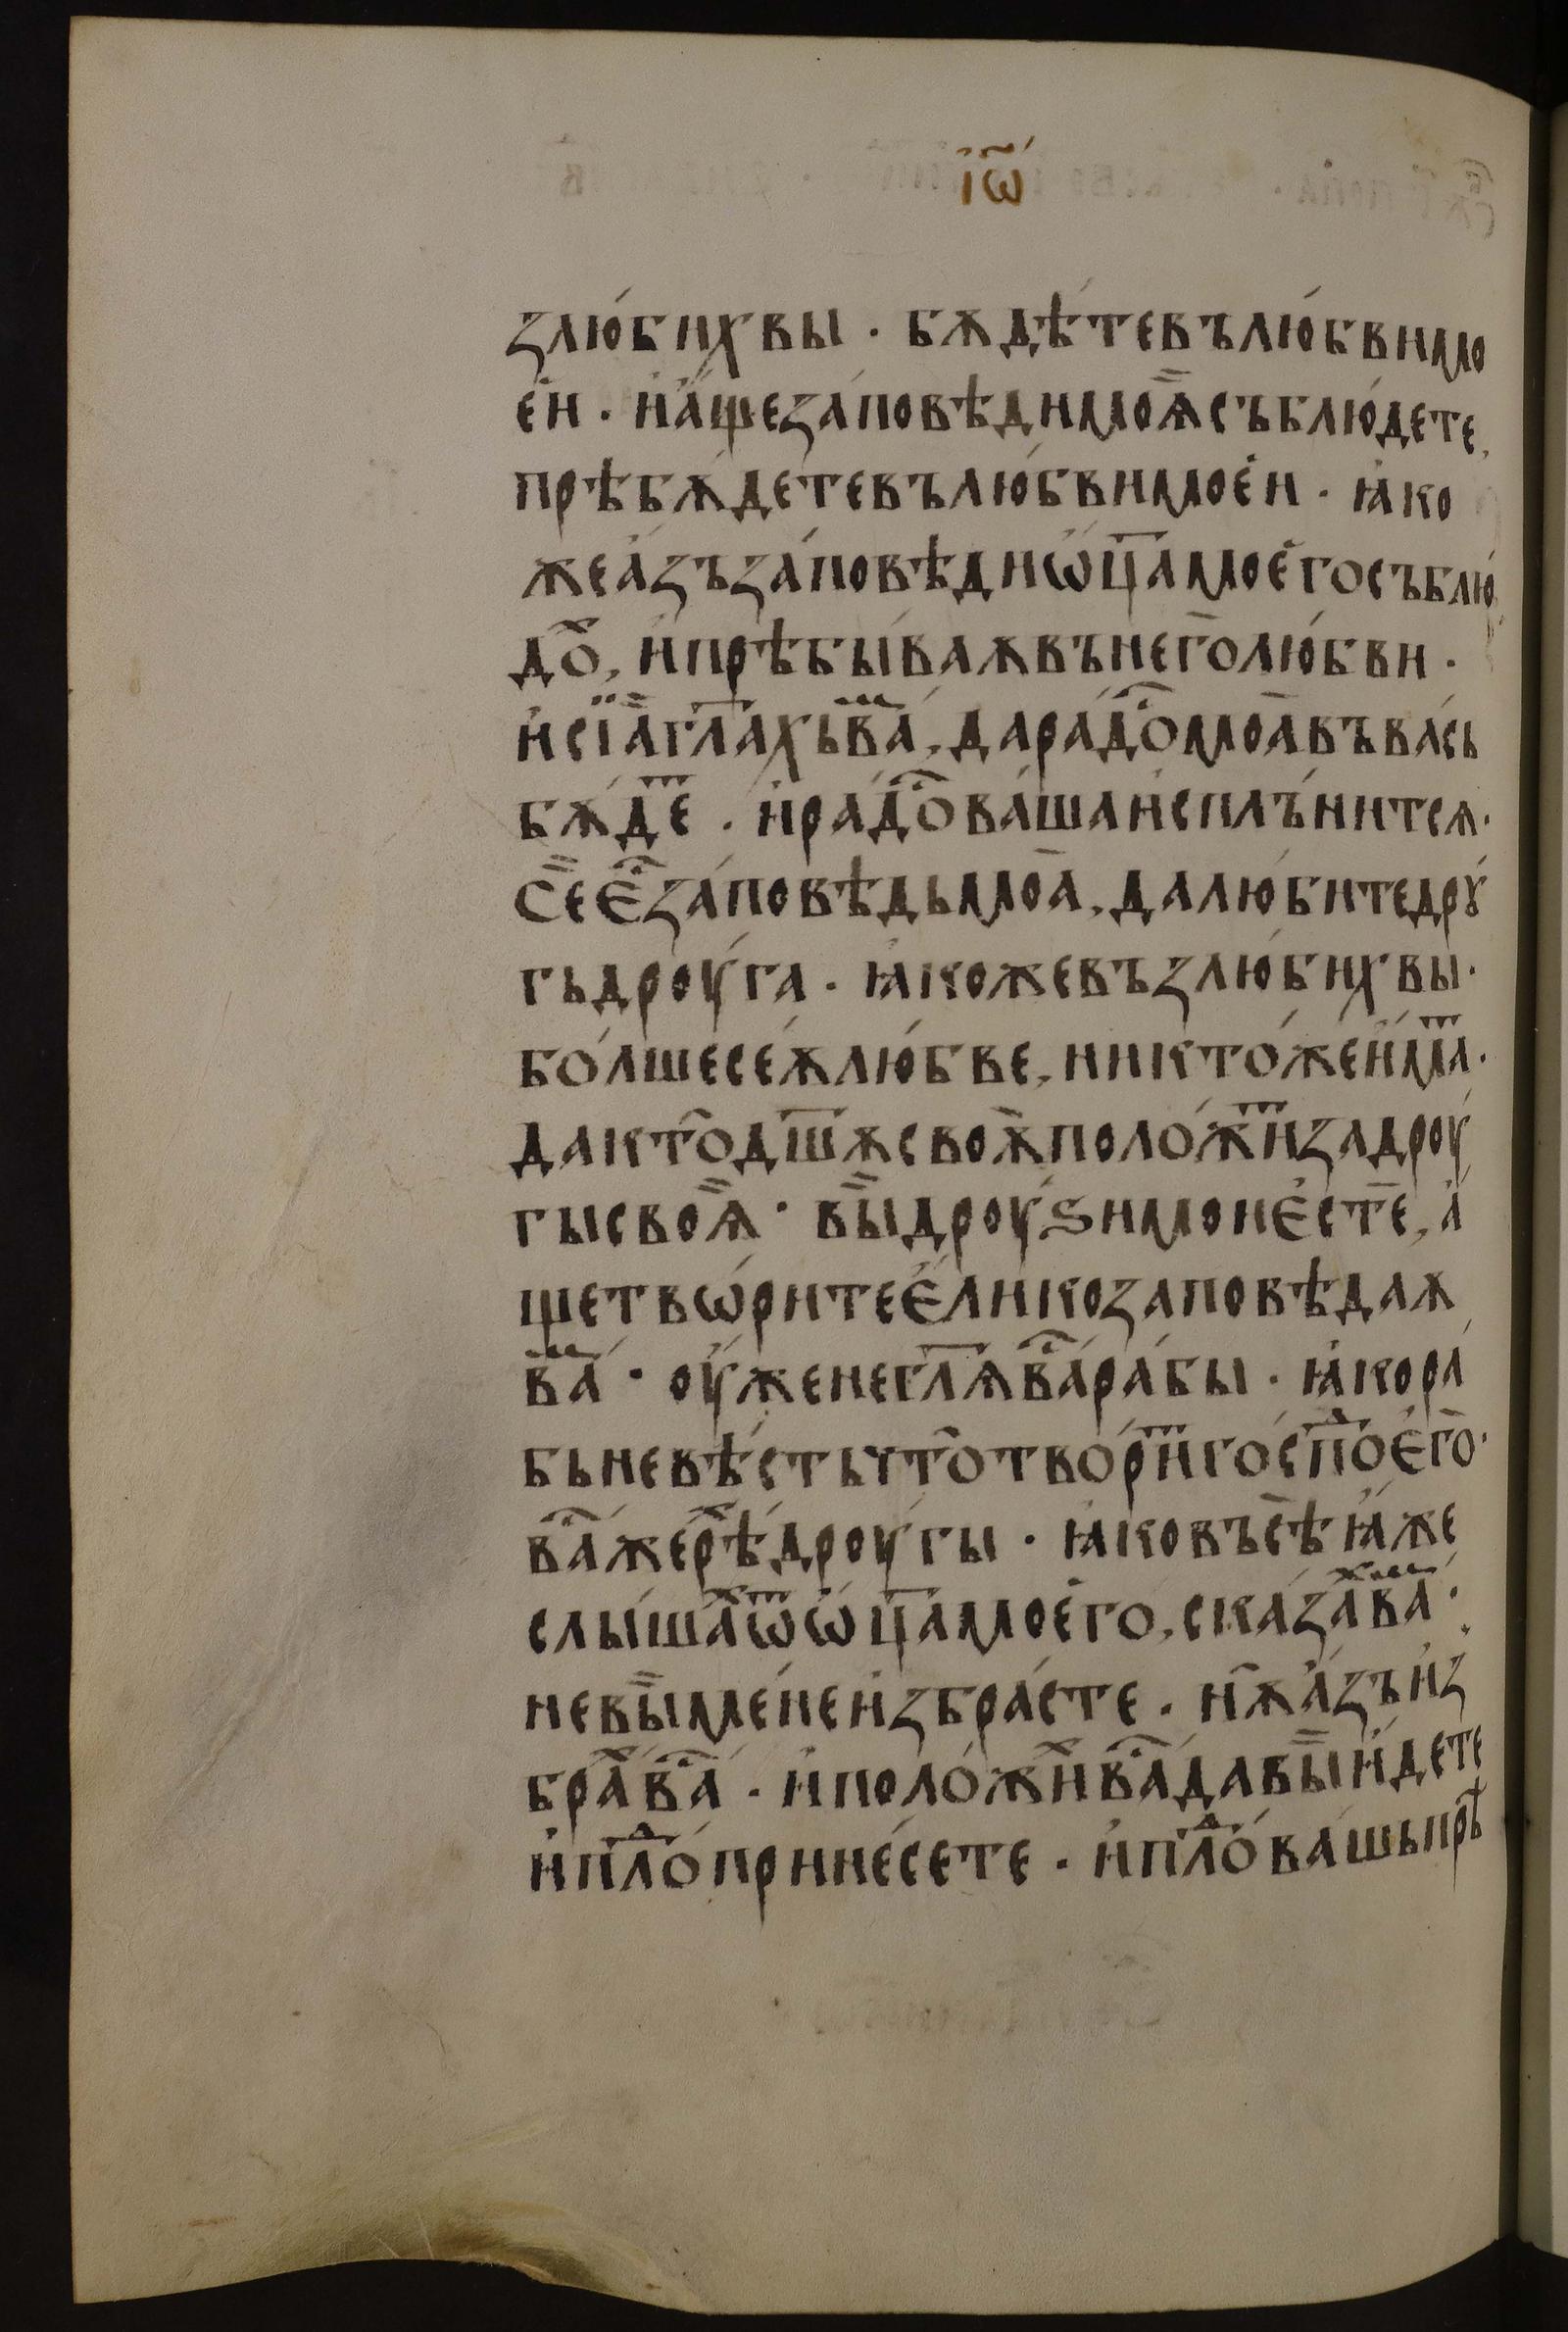 і҆ѡ҃
злю́бихвы · бѫдѣ́тевълю́бвимо
е́и · и҆а́щезаповѣдимоѧ҄съблю́дете,
прѣбѫ́детевълю́бвимоѐи · ꙗ҆ко
жеа҆́зъза́повѣдиѡ҆ц҃амоѐгосъблю́
до́ⷯ, и҆прѣбы́ваѫвънего̑лю́бви ·
и҆сїа҄гл҃ахьва́ⷨ, дара́до́ⷭ҇моа̑въва́сь
бѫ́деⷮ · и҆ра́до́ⷭ҇ва́шаи҆сплъ́нитсѧ ·
Се҄є҆ⷭ҇за́повѣдьмоа̑, далю́битедрꙋ́
гьдроу́га · ꙗ҆кожевъзлю́бихвы ·
бо́лшесеѫ̀лю́бве, никто́жеи҆маⷮ ·
дакто̑дш҃ѫсвоѫ҄положи́ⷮзадроу́
гысвоѧ҄ · вы҄дроу́ѕимоиє҆сте̑, а҆
щетвѡ́ритеє҆ликозаповѣдаѫ
ва́ⷨ · оу҆женегл҃ѧва́ⷭ҇ра́бы · ꙗ҆кора́
бьневѣ́стьчто̑твори́ⷮгоспо́ⷣє҆го̑ ·
ва́ⷭ҇жерѣ́ⷯдроу́гы · ꙗ҆ковъсѣ̑ꙗ҆же
слы́шаⷯѿѡ҆ц҃амоѐго, сказа́ⷯва́ⷨ ·
невы҄ме́неи҆збра́сте · нѫ̑а҆зъи҆з
бра́ⷯва́ⷭ҇ · и҆положи́ⷯва́ⷭ҇давы҄и҆дете
и҆пло́ⷣпринесете · и҆пло́ⷣва́шьпрѣ